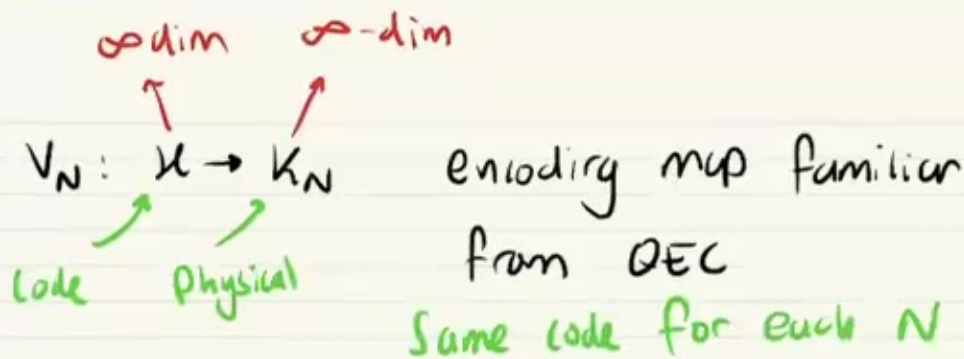 ∞ dim ∞-dim
V_N : H → K_N encoding map familiar
from QEC
Code Physical
Same code for each N